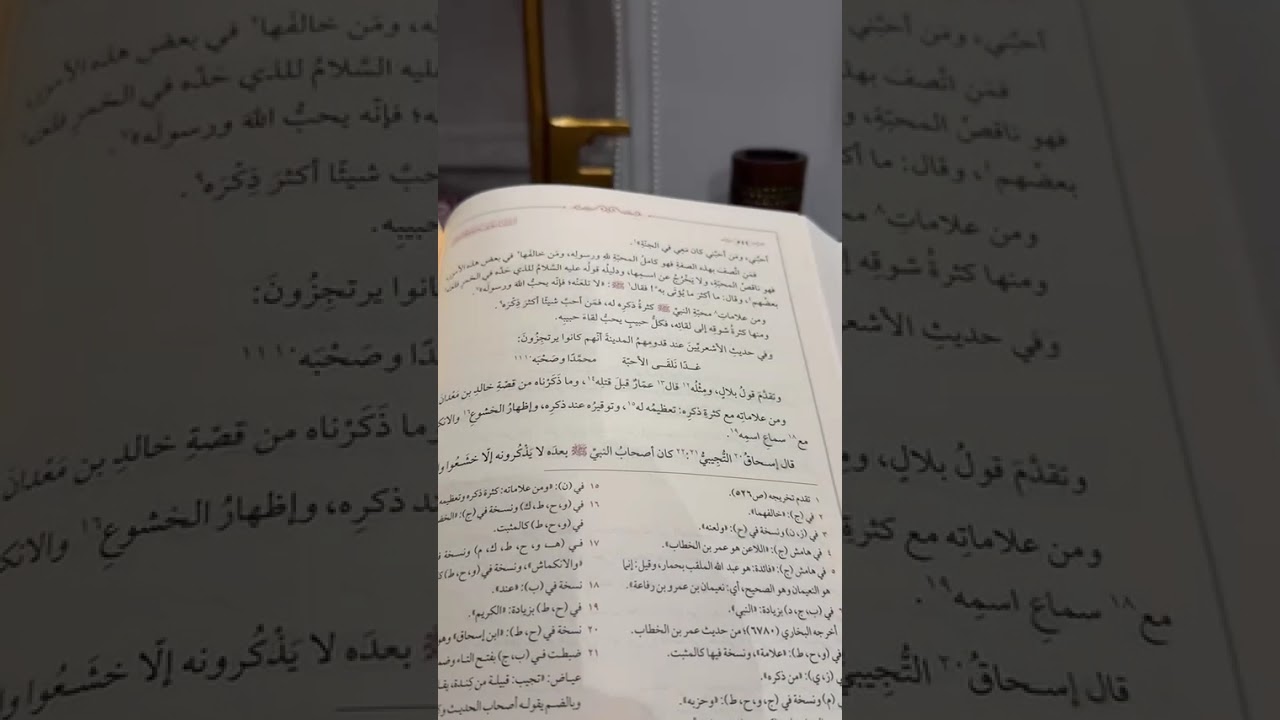 أحبَّني، ومَن أحبَّني كان مَعِي في الجنَّةِ»١.
فمَن اتَّصف بهذه الصفةِ فهو كاملُ المحبّةِ لله ورسولِه، ومَن خالفَها٢ في بعض هذه الأمورِ
فهو ناقصُ المحبّةِ، ولا يَخْرُجُ عن اسمِها، ودليلُه قولُه عليه السَّلامُ للذي حَدَّه في الخمرِ فلعنَه
بعضُهم٤، وقال: ما أكثرَ ما يُؤتَى به! فقال ﷺ: «لا تَلعَنْه؛ فإنَّه يحبُّ اللهَ ورسولَه»٧.
ومن علاماتِ٨ محبّةِ النبيِّ ﷺ كثرةُ ذكرِه له، فمَن أحبَّ شيئًا أكثرَ ذِكْرَه٩.
ومنها كثرةُ شوقِه إلى لقائِه، فكلُّ حبيبٍ يحبُّ لقاءَ حبيبِه.
وفي حديثِ الأشعريِّينَ عند قدومِهمُ المدينةَ أنَّهم كانوا يرتجِزُونَ:
غـدًا نَلقَـى الأحبّهْ محمّدًا وصَحْبَه١٠ ١١
وتقدَّمَ قولُ بلالٍ، ومِثْلُه١٢ قال١٣ عمّارٌ قبلَ قتلِه١٤، وما ذَكَرْناه من قصّةِ خالدِ بن مَعْدانَ
ومن علاماتِه مع كثرةِ ذكرِه: تعظيمُه له١٥، وتوقيرُه عند ذكرِه، وإظهارُ الخشوعِ١٦ والانك
مع١٨ سماعِ اسمِه١٩.
قال إسحاقُ٢٠ التُّجِيبيُّ٢١،٢٢: كان أصحابُ النبيِّ ﷺ بعدَه لا يَذْكُرونه إلّا خشَعُوا وا
١ تقدم تخريجه (ص٥٢٦).
٢ في (ج): «خالفهما».
٣ في (ز، ن) ونسخة في (ح): «ولعنه».
٤ في هامش (ج): «اللاعن هو عمر بن الخطاب».
٥ في هامش (ج): «فائدة: هو عبد الله الملقب بحمار، وقيل: إنما
هو النعيمان وهو الصحيح، أي: نعيمان بن عمرو بن رفاعة».
٦ في (ب، ج، د) بزيادة: «النبي».
أخرجه البخاري (٦٧٨٠)؛ من حديث عمر بن الخطاب.
في (و، ح، ط): «علامة»، ونسخة فيها كالمثبت.
في (ز، ي): «من ذكره».
(م) ونسخة في (ج، و، ح، ط): «وحزبه».
١٥ في (ن): «ومن علاماته: كثرة ذكره وتعظيمه
١٦ في (و، ح، ط، ك) ونسخة في (ج): «الخض
في (و، ح، ط) كالمثبت.
١٧ في (هـ، و، ح، ط، ك، م) ونسخة ف
«والانكماش»، ونسخة في (و، ح، ط) ك
١٨ نسخة في (ب): «عند».
١٩ في (ح، ط) بزيادة: «الكريم».
٢٠ نسخة في (ح، ط): «ابن إسحاق» وهو
٢١ ضبطت في (ب، ج) بفتح التاء وضم
عياض: «تجيب: قبيلة من كندة، يقا
وبالضم يقوله أصحاب الحديث وك